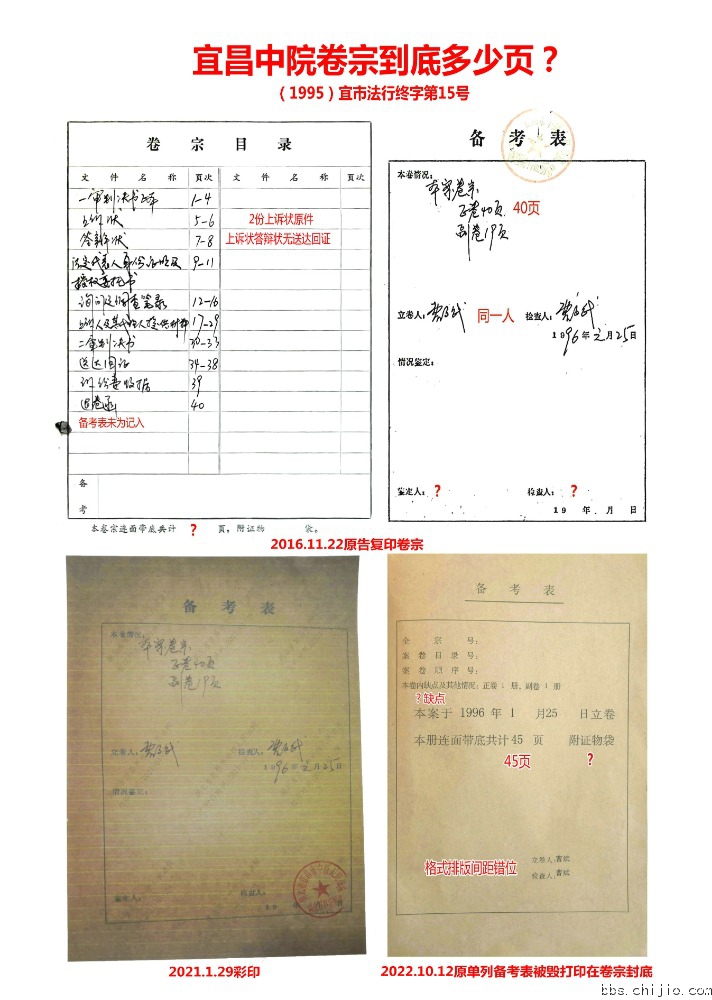 宜昌中院卷宗到底多少页？
（1995）宜市法行终字第15号
卷 宗 目 录
文 件 名 称 页次 文 件 名 称 页次
一审判决书正本 1-4
上诉状 5-6 2份上诉状原件
答辩状 7-8 上诉状答辩状无送达回证
法定代表人身份证明及
授权委托书 9-11
询问及调查笔录 12-16
上诉人及其代理人提供材料 17-29
二审判决书 30-33
送达回证 34-38
诉讼费收据 39
退卷函 40
备考表未为记入
备
考
本卷宗连面带底共计 ？ 页，附证物 袋。
备 考 表
本卷情况：
本案卷宗
正卷40页 40页
副卷19页
立卷人： 同一人 检查人：
1996年元月25日
情况鉴定：
鉴定人： ？ 检查人： ？
19 年 月 日
2016.11.22原告复印卷宗
备 考 表
本卷情况：
本案卷宗
正卷40页
副卷19页
立卷人： 检查人：
1996年元月25日
情况鉴定：
鉴定人： 检查人：
19
2021.1.29彩印
备 考 表
全 宗 号：
案 卷 目 录 号：
案 卷 顺 序 号：
本卷内缺点及其他情况：正卷 1 册，副卷 1 册
？缺点
本案于 1996 年 1 月25 日立卷
本册连面带底共计45 页 附证物袋
45页 ？
格式排版间距错位
立卷人：曹斌
检查人：曹斌
2022.10.12原单列备考表被毁打印在卷宗封底
bbs.chijio.com